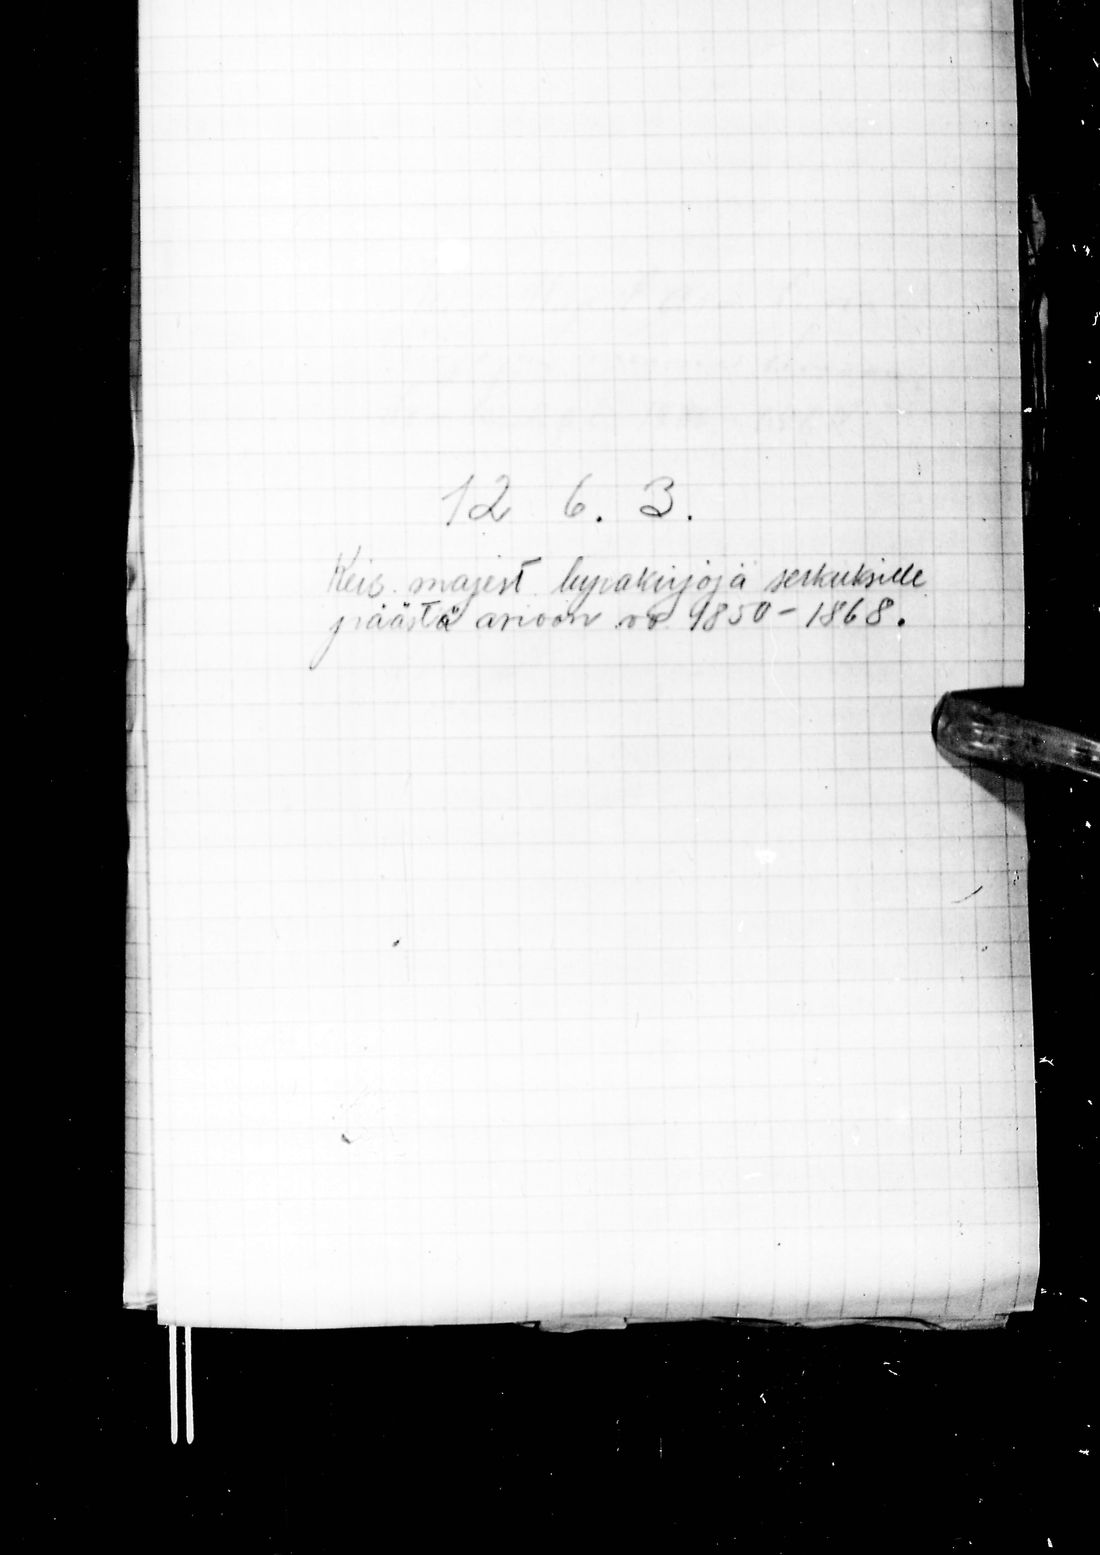 12 6. 3.
Keis. majest lupakirjoja serkuksille
päästä avioon vv. 1850-1868.